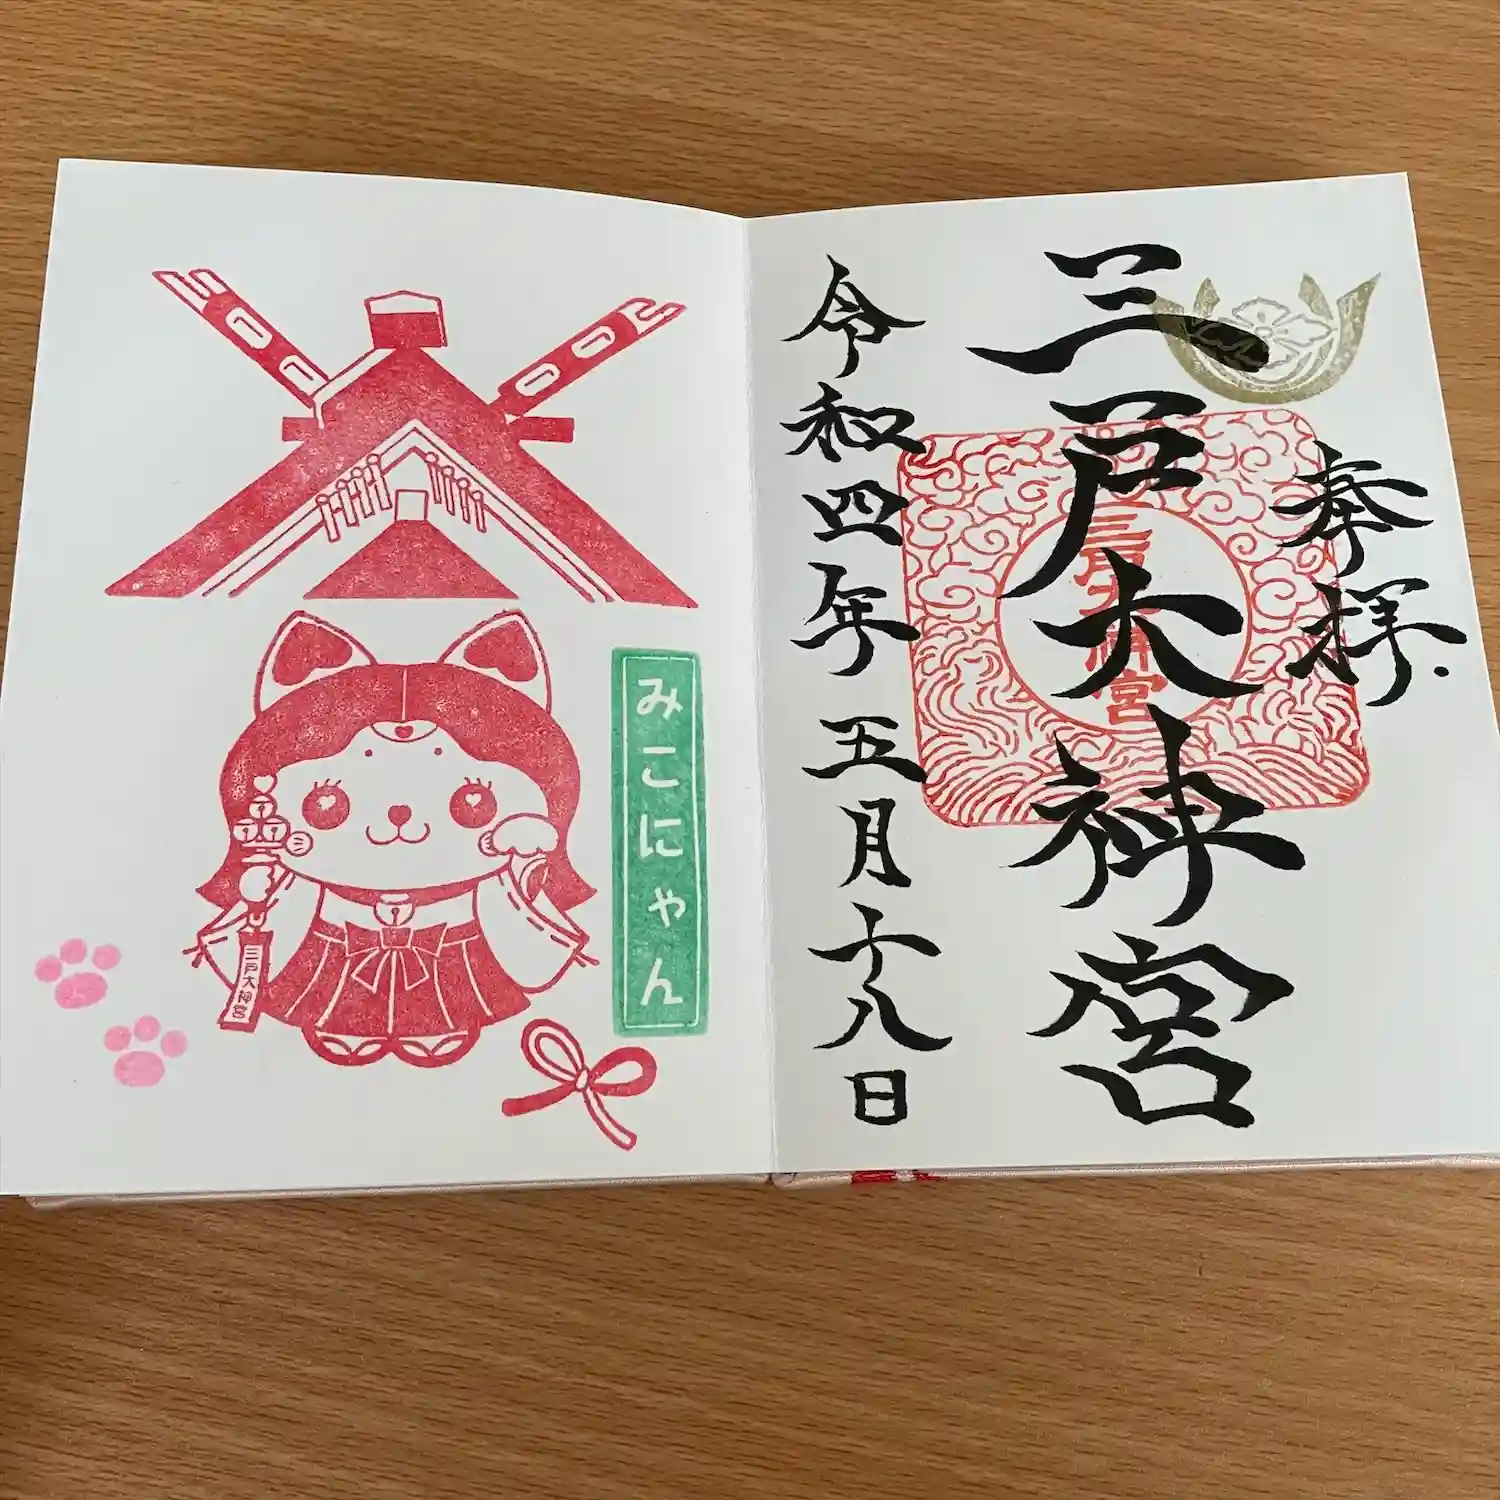 奉拝
三戸大神宮
三戸大神宮
令和四年五月十八日
みこにゃん
三戸大神宮